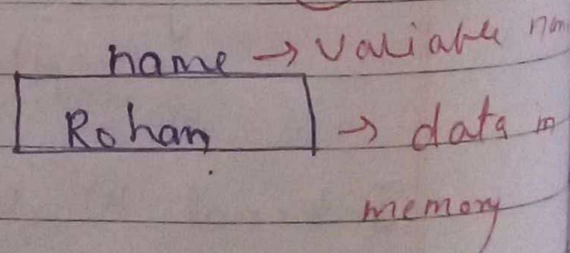 name → variable
Rohan → data in
memory